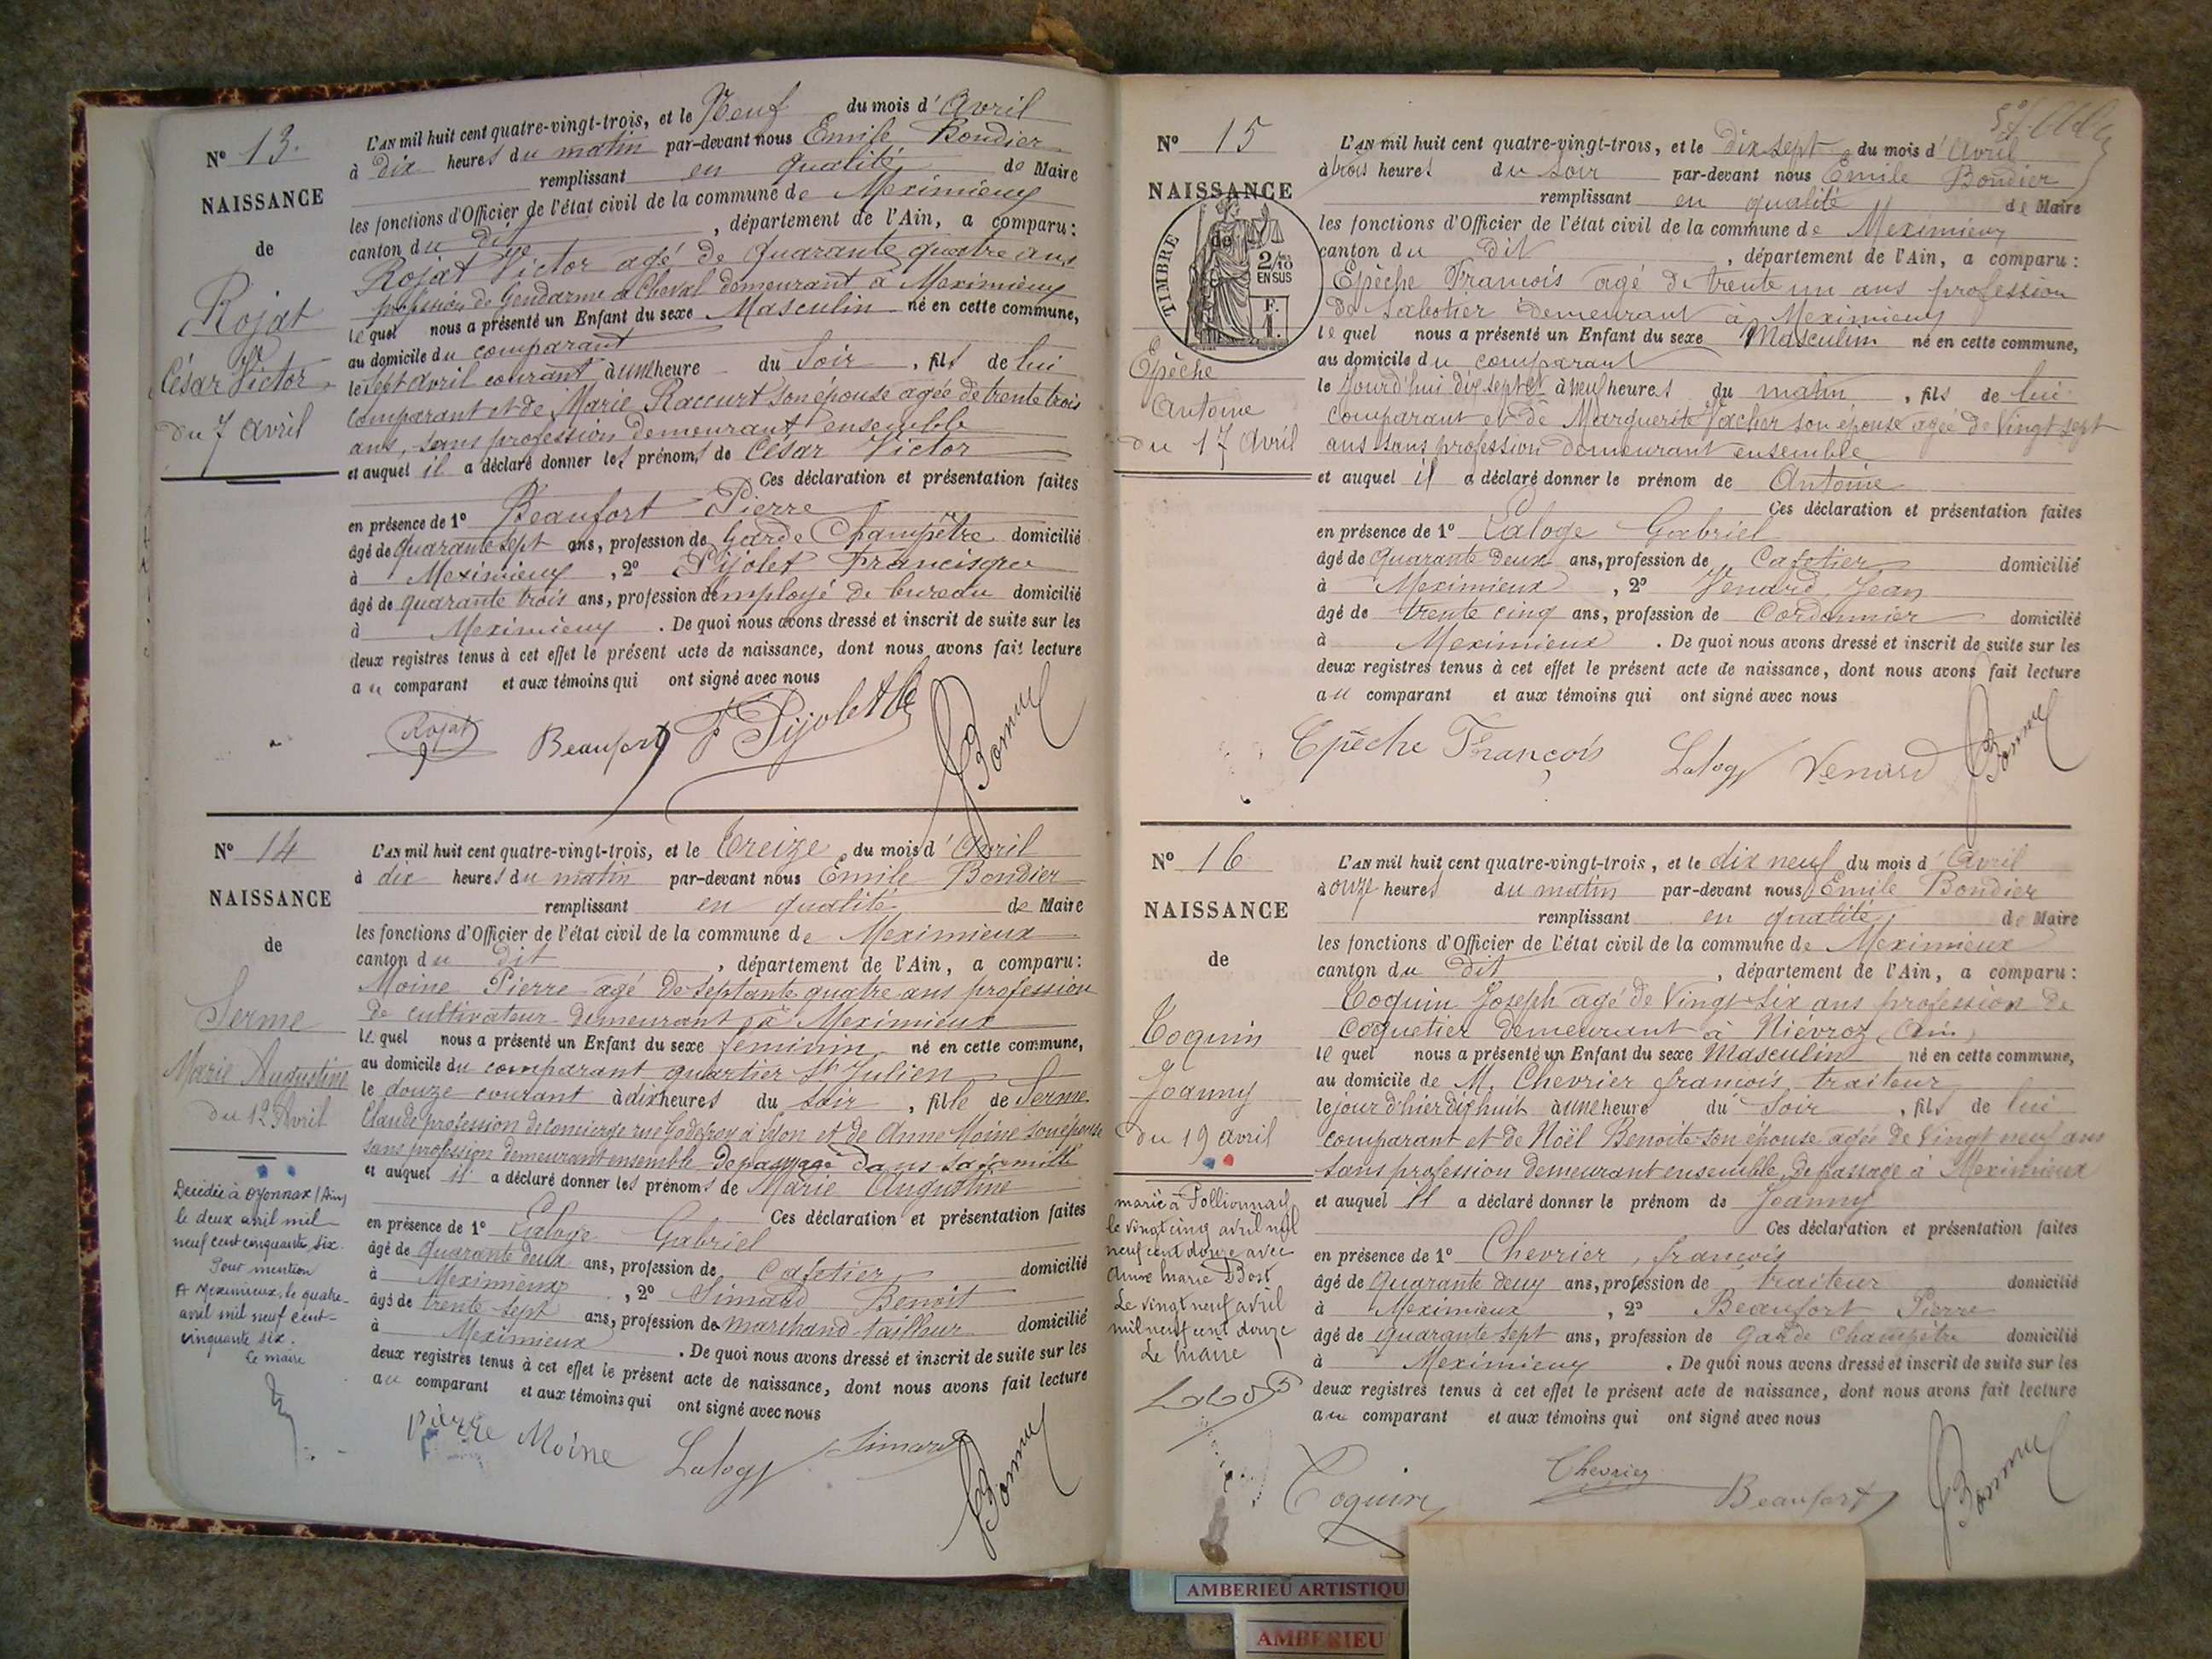 Nº 13.
NAISSANCE
de
Rojat
César Victor
du 7 avril
L'AN mil huit cent quatre-vingt-trois, et le Neuf du mois d'Avril
à dix heures du matin par-devant nous Emile Bondier
remplissant en qualité de Maire
les fonctions d'Officier de l'état civil de la commune de Meximieux
canton du dit, département de l'Ain, a comparu:
Rojat Victor agé de quarante quatre ans
profession de Gendarme à Cheval demeurant à Meximieux
lequel nous a présenté un Enfant du sexe Masculin né en cette commune,
au domicile du comparant
le sept avril courant à une heure du Soir, fils de lui
comparant et de Marie Raccurt son épouse agée de trente trois
ans, sans profession demeurant ensemble
et auquel il a déclaré donner les prénoms de César Victor
Ces déclaration et présentation faites
en présence de 1º Beaufort Pierre
âgé de quarante sept ans, profession de Garde Champêtre domicilié
à Meximieux, 2º Pijolet Francisque
âgé de quarante trois ans, profession d'employé de bureau domicilié
à Meximieux. De quoi nous avons dressé et inscrit de suite sur les
deux registres tenus à cet effet le présent acte de naissance, dont nous avons fait lecture
au comparant et aux témoins qui ont signé avec nous
Rojat Beaufort F Pijolet
Nº 14
NAISSANCE
de
Serme
Marie Augustine
du 12 Avril
Décédée à Oyonnax (Ain)
le deux avril mil
neuf cent cinquante six.
Pour mention
A Meximieux, le quatre
avril mil neuf cent
cinquante six.
Le maire
L'AN mil huit cent quatre-vingt-trois, et le treize du mois d'Avril
à dix heures du matin par-devant nous Emile Bondier
remplissant en qualité de Maire
les fonctions d'Officier de l'état civil de la commune de Meximieux
canton du dit, département de l'Ain, a comparu:
Moine Pierre agé de septante quatre ans profession
de cultivateur demeurant à Meximieux
lequel nous a présenté un Enfant du sexe féminin né en cette commune,
au domicile du comparant quartier St Julien
le douze courant à dix heures du soir, fille de Serme
Claude profession de concierge rue Godefroy à Lyon et de Anne Moine son épouse
sans profession demeurant ensemble de passage dans sa famille
et auquel il a déclaré donner les prénoms de Marie Augustine
Ces déclaration et présentation faites
en présence de 1º Laloge Gabriel
âgé de quarante deux ans, profession de Cafetier domicilié
à Meximieux, 2º Simand Benoit
âgé de trente sept ans, profession de marchand tailleur domicilié
à Meximieux. De quoi nous avons dressé et inscrit de suite sur les
deux registres tenus à cet effet le présent acte de naissance, dont nous avons fait lecture
au comparant et aux témoins qui ont signé avec nous
pierre Moine Laloge Simand
Nº 15
NAISSANCE
de
TIMBRE
2/10
EN SUS
F.
1.
Epêche
Antoine
du 17 Avril
L'AN mil huit cent quatre-vingt-trois, et le dix sept du mois d'Avril
à trois heures du soir par-devant nous Emile Bondier
remplissant en qualité de Maire
les fonctions d'Officier de l'état civil de la commune de Meximieux
canton du dit, département de l'Ain, a comparu:
Epêche François agé de trente un ans profession
de Sabotier demeurant à Meximieux
lequel nous a présenté un Enfant du sexe Masculin né en cette commune,
au domicile du comparant
le jourd'hui dix sept à neuf heures du matin, fils de lui
comparant et de Marguerite Vacher son épouse agée de vingt sept
ans sans profession demeurant ensemble
et auquel il a déclaré donner le prénom de Antoine
Ces déclaration et présentation faites
en présence de 1º Laloge Gabriel
âgé de quarante deux ans, profession de Cafetier domicilié
à Meximieux, 2º Venard Jean
âgé de trente cinq ans, profession de Cordonnier domicilié
à Meximieux. De quoi nous avons dressé et inscrit de suite sur les
deux registres tenus à cet effet le présent acte de naissance, dont nous avons fait lecture
au comparant et aux témoins qui ont signé avec nous
Epêche François Laloge Venard
Nº 16
NAISSANCE
de
Coquin
Joanny
du 19 avril
marié à Pollionnay
le vingt cinq avril mil
neuf cent douze avec
Anne Marie Bost
Le vingt neuf avril
mil neuf cent douze
Le Maire
L'AN mil huit cent quatre-vingt-trois, et le dix neuf du mois d'Avril
à onze heures du matin par-devant nous Emile Bondier
remplissant en qualité de Maire
les fonctions d'Officier de l'état civil de la commune de Meximieux
canton du dit, département de l'Ain, a comparu:
Coquin Joseph agé de vingt six ans profession de
Coquetier demeurant à Niévroz (Ain)
lequel nous a présenté un Enfant du sexe Masculin né en cette commune,
au domicile de M. Chevrier françois, traiteur
le jour d'hier dix huit à une heure du Soir, fils de lui
comparant et de Noël Benoite son épouse agée de vingt neuf ans
sans profession demeurant ensemble, de passage à Meximieux
et auquel il a déclaré donner le prénom de Joanny
Ces déclaration et présentation faites
en présence de 1º Chevrier, françois
âgé de quarante deux ans, profession de traiteur domicilié
à Meximieux, 2º Beaufort Pierre
âgé de quarante sept ans, profession de Garde Champêtre domicilié
à Meximieux. De quoi nous avons dressé et inscrit de suite sur les
deux registres tenus à cet effet le présent acte de naissance, dont nous avons fait lecture
au comparant et aux témoins qui ont signé avec nous
Coquin Chevrier Beaufort
AMBERIEU ARTISTIQU
AMBERIEU